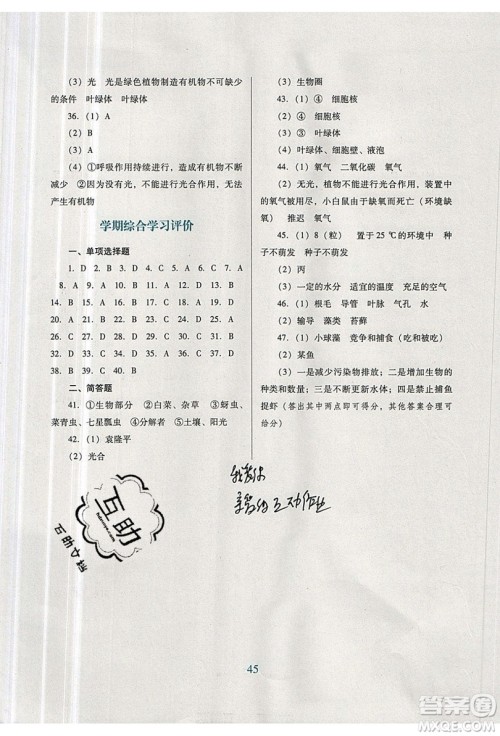 (3) 光　光是绿色植物制造有机物不可缺少
的条件　叶绿体　叶绿体
36. (1) A
(2) B
(3) A
(4) ①呼吸作用持续进行，造成有机物不断
减少　②因为没有光，不能进行光合作用，无法
产生有机物
学期综合学习评价
一、单项选择题
1. D　2. D　3. C　4. D　5. D　6. C　7. A
8. A　9. A　10. C　11. C　12. D　13. B
14. B　15. A　16. C　17. B　18. A　19. B
20. A　21. C　22. D　23. D　24. D　25. C
26. B　27. D　28. D　29. C　30. C　31. D
32. D　33. C　34. D　35. C　36. C　37. A
38. D　39. B　40. B
二、简答题
41. ①生物部分　②白菜、杂草　③蚜虫、
菜青虫、七星瓢虫　④分解者　⑤土壤、阳光
42. (1) 袁隆平
(2) 光合
(3) 生物圈
43. (1) ④　细胞核
(2) ④　细胞核
(3) ④　叶绿体
(4) 叶绿体、细胞壁、液泡
44. (1) 氧气　二氧化碳　氧气
(2) 无光，植物不能进行光合作用，装置中
的氧气被用尽，小白鼠由于缺氧而死亡（环境缺
氧）　推迟　氧气
45. (1) 8（粒）　置于 25 ℃的环境中　种
子不萌发　种子不萌发
(2) 丙
(3) 一定的水分　适宜的温度　充足的空气
46. (1) ①根毛　导管　叶脉　气孔　水
(2) 输导　藻类　苔藓
47. (1) 小球藻　竞争和捕食（吃和被吃）
(2) 某鱼
(3) ①减少污染物排放；②增加生物的
种类和数量；③定时更新水体；④禁止捕鱼
捉虾（答出其中两点即可得分，其他答案合理可
得分）
互助
百助文档
45
答案圈